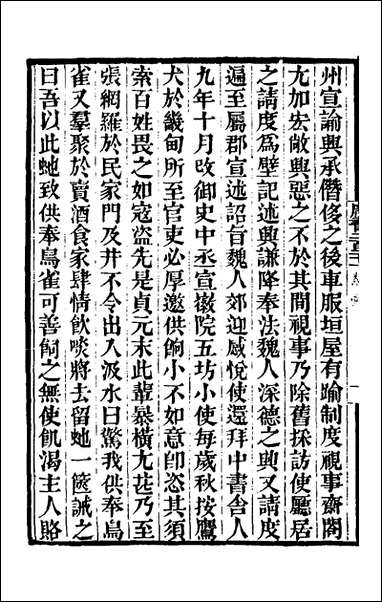 州宣諭興承僭侈之後車服垣屋有踰制度視事齋閣
尤加宏敞興惡之不於其間視事乃除舊採訪使廳居
之請度爲壁記述興謙降奉法魏人深德之興又請度
遍至屬郡宣述詔旨魏人郊迎感悅使還拜中書舍人
九年十月改御史中丞宣徽院五坊小使每歲秋按鷹
犬於畿甸所至官吏必厚邀供餉小不如意卽恣其須
索百姓畏之如寇盜先是貞元末此輩暴橫尤甚乃至
張網羅於民家門及井不令出入汲水曰驚我供奉鳥
雀又羣聚於賣酒食家肆情飲啖將去留虵一篋誡之
曰吾以此虵致供奉鳥雀可善飼之無使飢渴主人賂